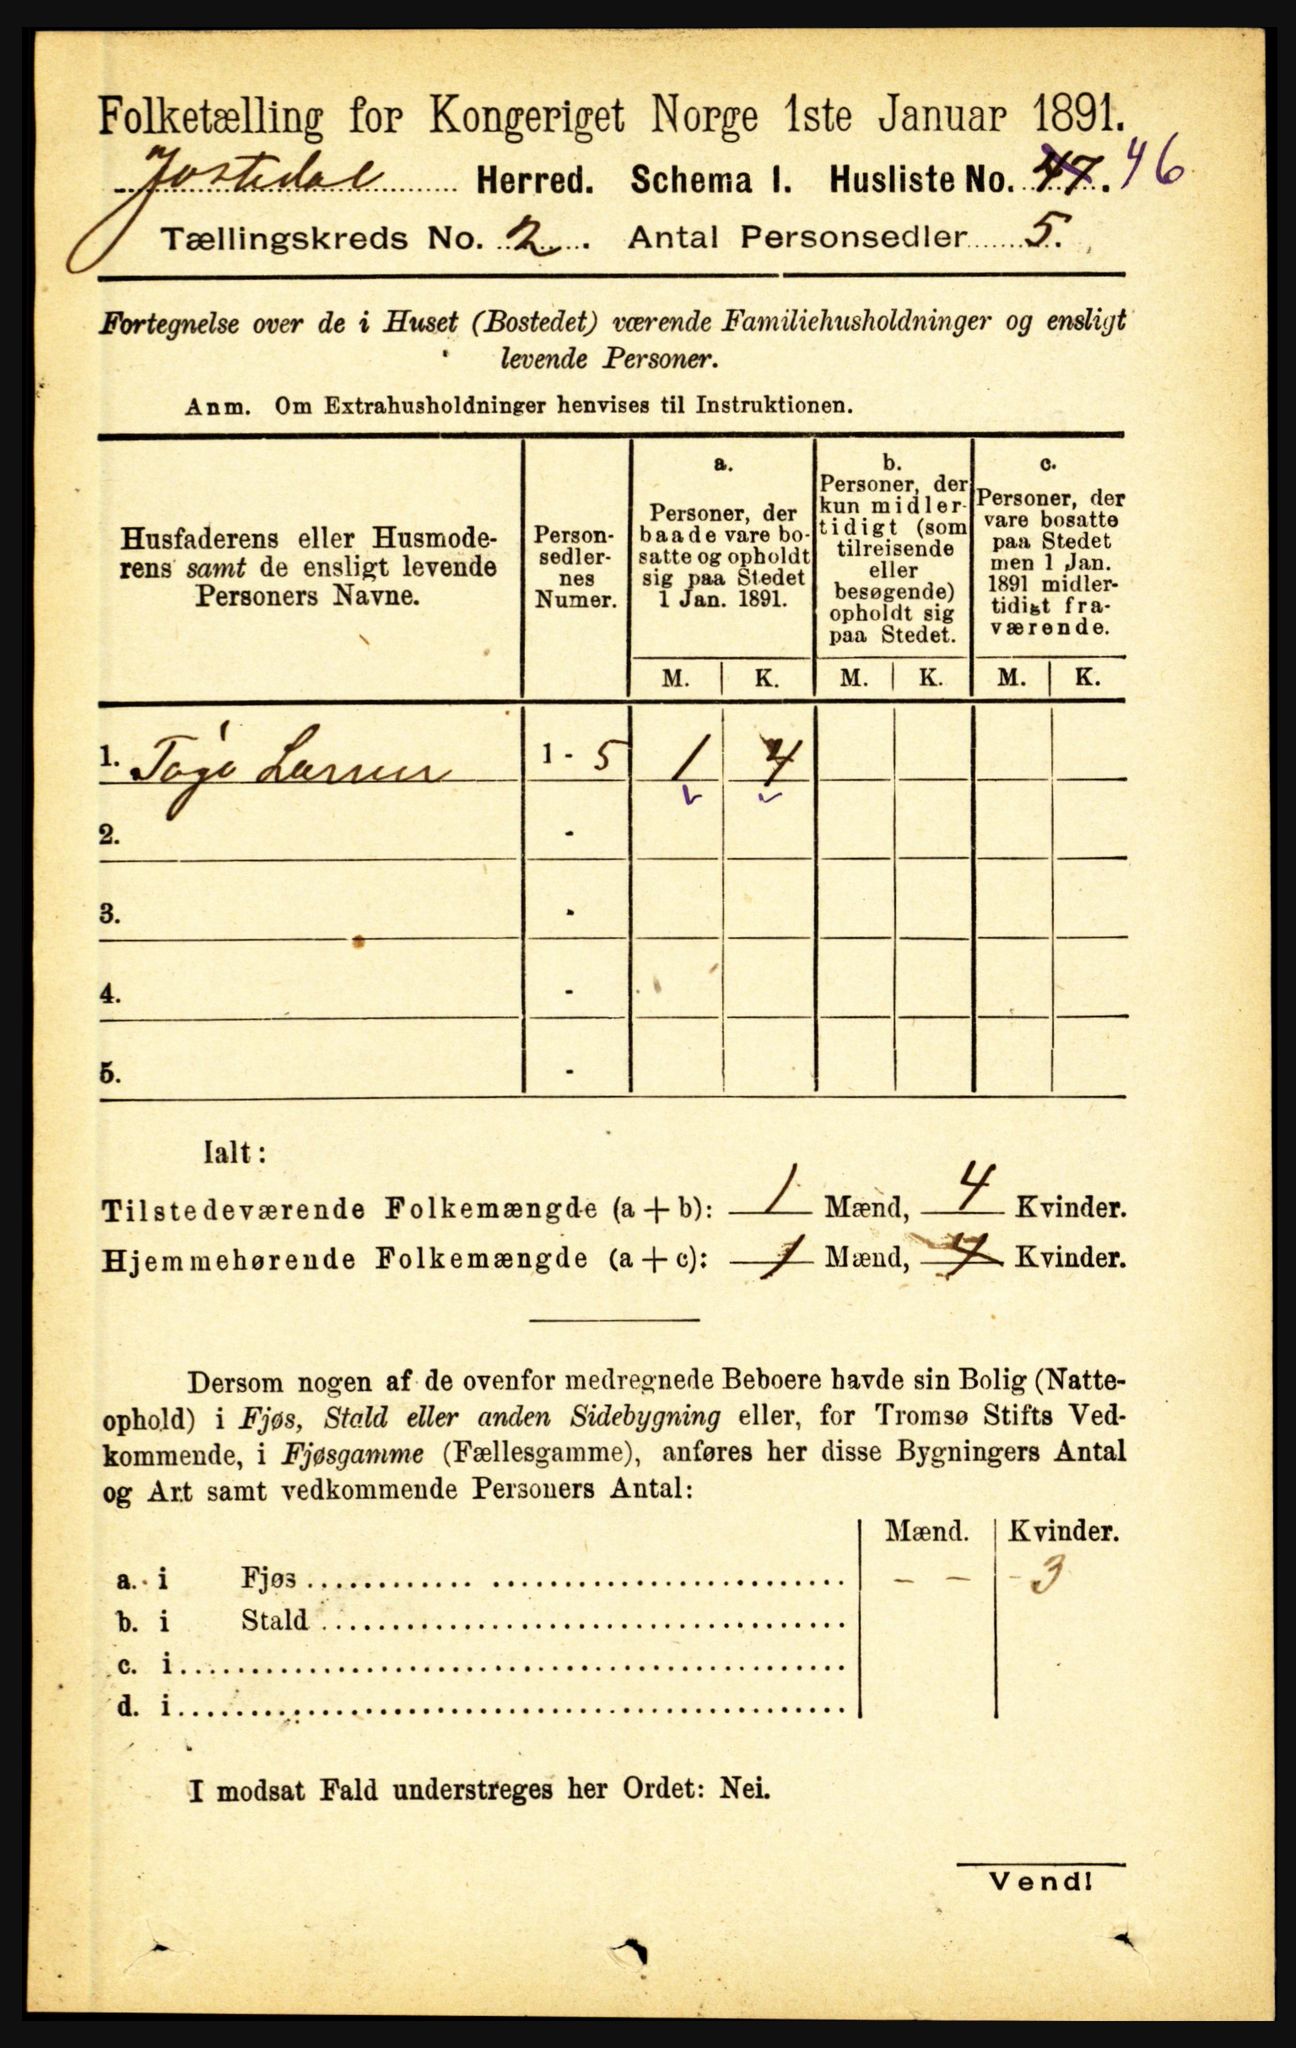 Folketælling for Kongeriget Norge 1ste Januar 1891.
Jostedal Herred. Schema 1. Husliste No. 47. 46
Tællingskreds No. 2. Antal Personsedler 5.
Fortegnelse over de i Huset (Bostedet) værende Familiehusholdninger og ensligt
levende Personer.
Anm. Om Extrahusholdninger henvises til Instruktionen.
Husfaderens eller Husmode-
rens samt de ensligt levende
Personers Navne.
Person-
sedler-
nes
Numer.
a.
Personer, der
baade vare bo-
satte og opholdt
sig paa Stedet
1 Jan. 1891.
b.
Personer, der
kun midler-
tidigt (som
tilreisende
eller
besøgende)
opholdt sig
paa Stedet.
c.
Personer, der
vare bosatte
paa Stedet
men 1 Jan.
1891 midler-
tidigt fra-
værende.
M. K. M. K. M. K.
1. Larsen 1 - 5 1 4
2. -
3. -
4. -
5. -
Ialt:
Tilstedeværende Folkemængde (a + b): 1 Mænd, 4 Kvinder.
Hjemmehørende Folkemængde (a + c): 1 Mænd, 4 Kvinder.
Dersom nogen af de ovenfor medregnede Beboere havde sin Bolig (Natte-
ophold) i Fjøs, Stald eller anden Sidebygning eller, for Tromsø Stifts Ved-
kommende, i Fjøsgamme (Fællesgamme), anføres her disse Bygningers Antal
og Art samt vedkommende Personers Antal:
Mænd. Kvinder.
a. i Fjøs - - - 3
b. i Stald
c. i
d. i
I modsat Fald understreges her Ordet: Nei.
Vend!